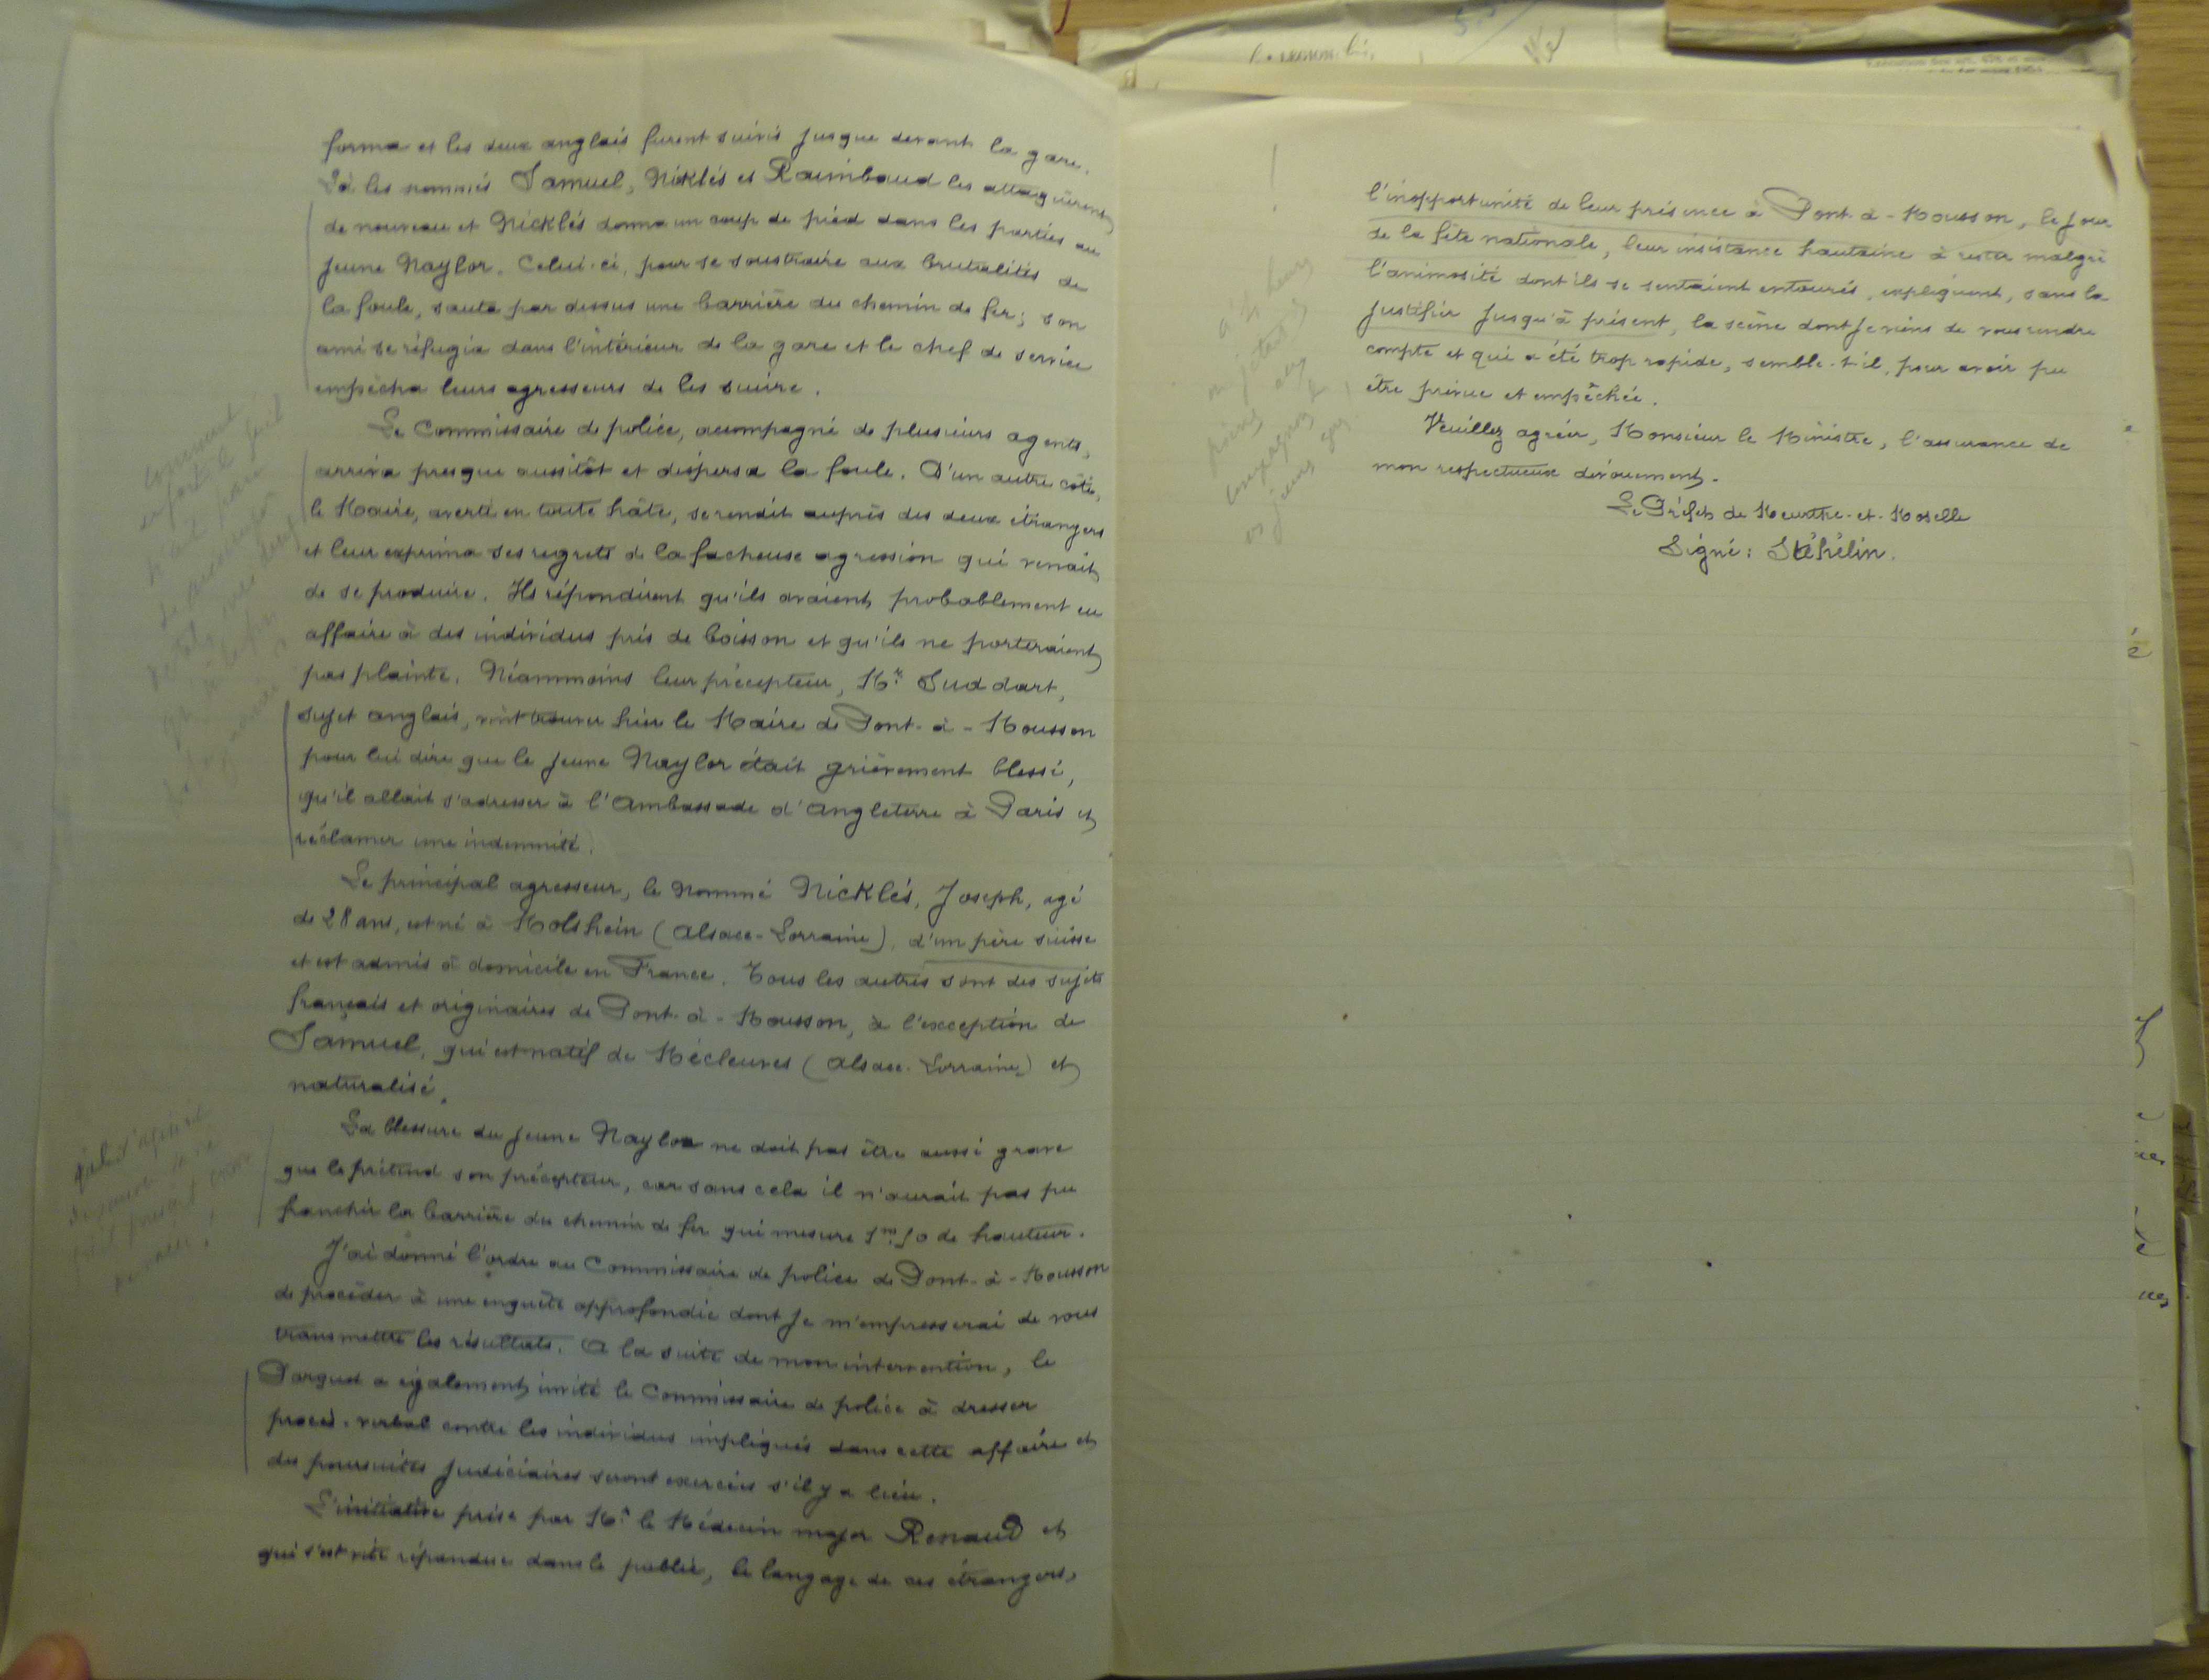 forma et les deux anglais furent suivis jusque devant la gare.
Là les nommés Samuel, Nicklés et Raimbaud les attaquèrent
de nouveau et Nicklés donna un coup de pied dans les parties au
jeune Naylor. Celui-ci, pour se soustraire aux brutalités de
la foule, sauta par dessus une barrière du chemin de fer; son
ami se réfugia dans l'intérieur de la gare et le chef de service
empêcha leurs agresseurs de les suivre.
Le Commissaire de police, accompagné de plusieurs agents,
arriva presque aussitôt et dispersa la foule. D'un autre côté,
le Maire, averti en toute hâte, se rendit auprès des deux étrangers
et leur exprima ses regrets de la facheuse agression qui venait
de se produire. Ils répondirent qu'ils avaient probablement eu
affaire à des individus pris de boisson et qu'ils ne porteraient
pas plainte. Néammoins leur précepteur, Mr. Suddart,
sujet anglais, vint trouver hier le Maire de Pont-à-Mousson
pour lui dire que le jeune Naylor était grièvement blessé,
qu'il allait s'adresser à l'Ambassade d'Angleterre à Paris et
réclamer une indemnité.
Le principal agresseur, le nommé Nicklés, Joseph, agé
de 28 ans, est né à Molshein (Alsace-Lorraine), d'un père suisse
et est admis à domicile en France. Tous les autres sont des sujets
français et originaires de Pont-à-Mousson, à l'exception de
Samuel, qui est natif de Mécleuves (Alsace-Lorraine) et
naturalisé.
La blessure du jeune Naylor ne doit pas être aussi grave
que le prétend son précepteur, car sans cela il n'aurait pas pu
franchir la barrière du chemin de fer qui mesure 1m.50 de hauteur.
J'ai donné l'ordre au Commissaire de police de Pont-à-Mousson
de procéder à une enquête approfondie dont je m'empresserai de vous
transmettre les résultats. A la suite de mon intervention, le
Parquet a également invité le Commissaire de police à dresser
procès-verbal contre les individus impliqués dans cette affaire et
des poursuites judiciaires seront exercées s'il y a lieu.
L'initiative prise par Mr. le Médecin major Renaud et
qui s'est vite répandue dans le public, le langage de ces étrangers,
l'inopportunité de leur présence à Pont-à-Mousson, le jour
de la fête nationale, leur insistance hautaine à rester malgré
l'animosité dont ils se sentaient entourés, expliquent, sans la
justifier jusqu'à présent, la scène dont je viens de vous rendre
compte et qui a été trop rapide, semble-t-il, pour avoir pu
être prévue et empêchée.
Veuillez agréer, Monsieur le Ministre, l'assurance de
mon respectueux dévouement.
Le Préfet de Meurthe-et-Moselle
Signé: Stéhelin.